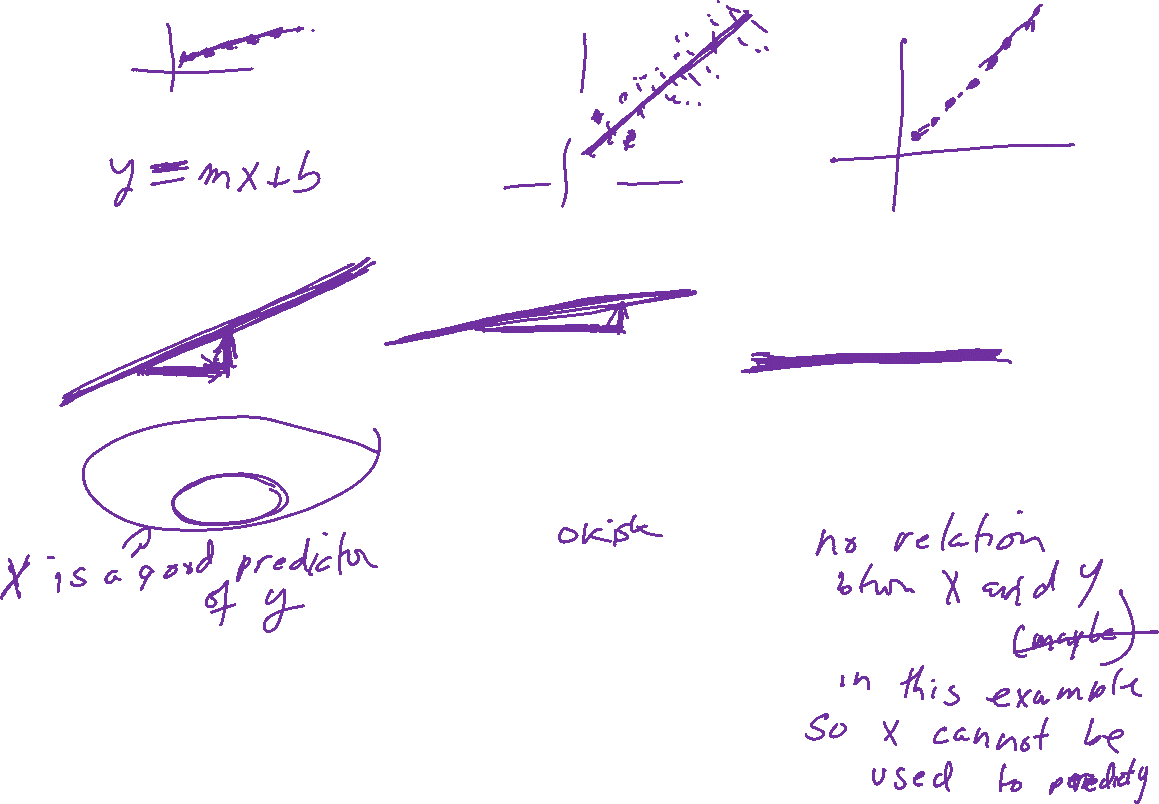 y = mx+b
X is a good predictor
of y
okish
no relation
btwn X and y
(maybe)
in this example
so x cannot be
used to predict y